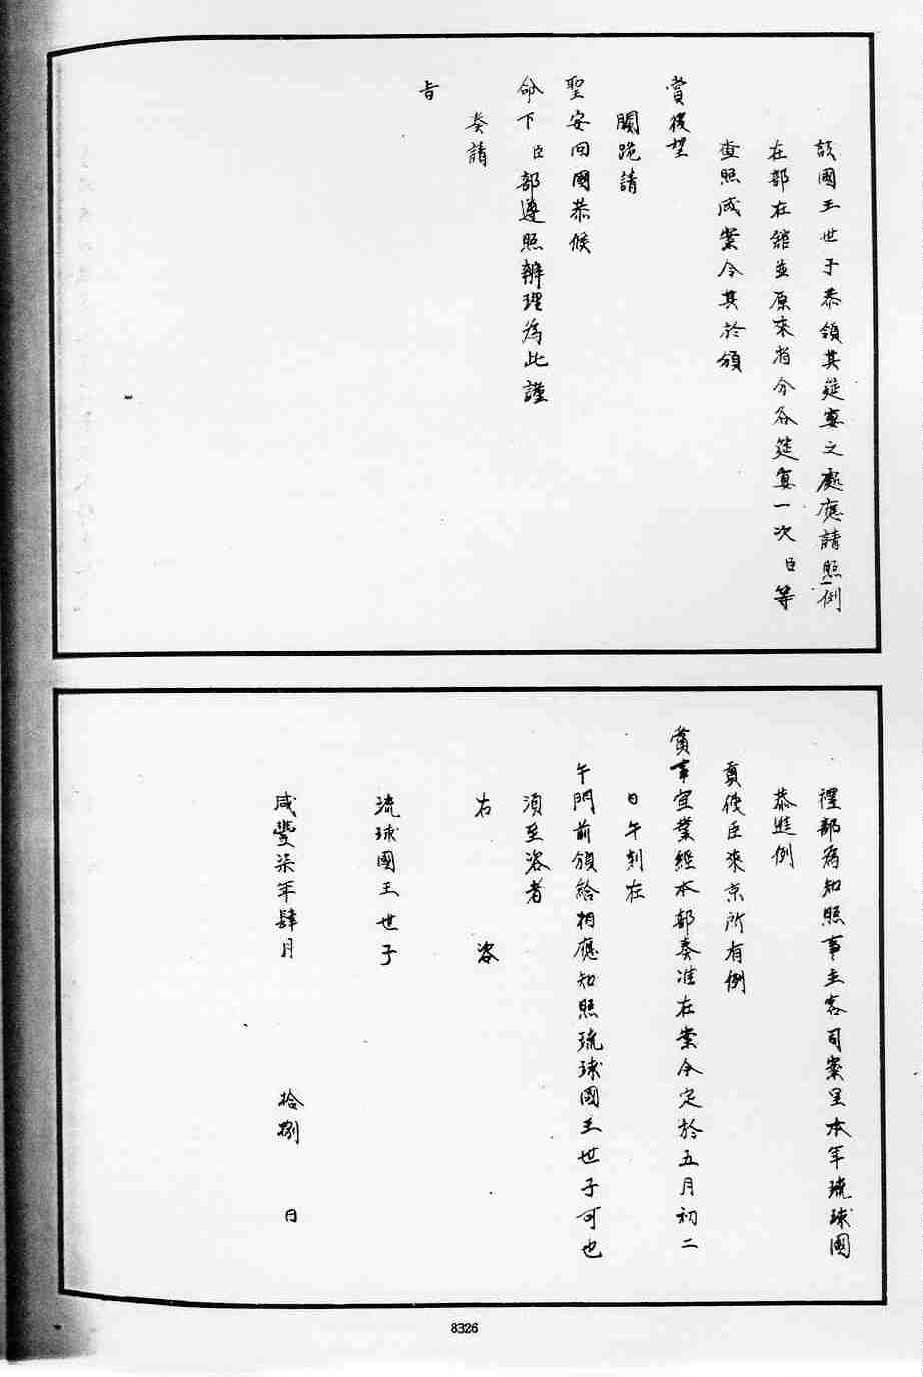 該國王世子恭領其筵宴之處應請照例
在部在館並原來省分各筵宴一次臣等
查照成案令其於頒
賞後望
闕跪請
聖安回國恭候
命下臣部遵照辦理為此謹
奏請
旨
禮部為知照事主客司案呈本年琉球國
恭進例
貢使臣來京所有例
賞事宜業經本部奏准在案今定於五月初二
日午刻在
午門前頒給相應知照琉球國王世子可也
須至咨者
右咨
琉球國王世子
咸豐柒年肆月拾捌日
8326